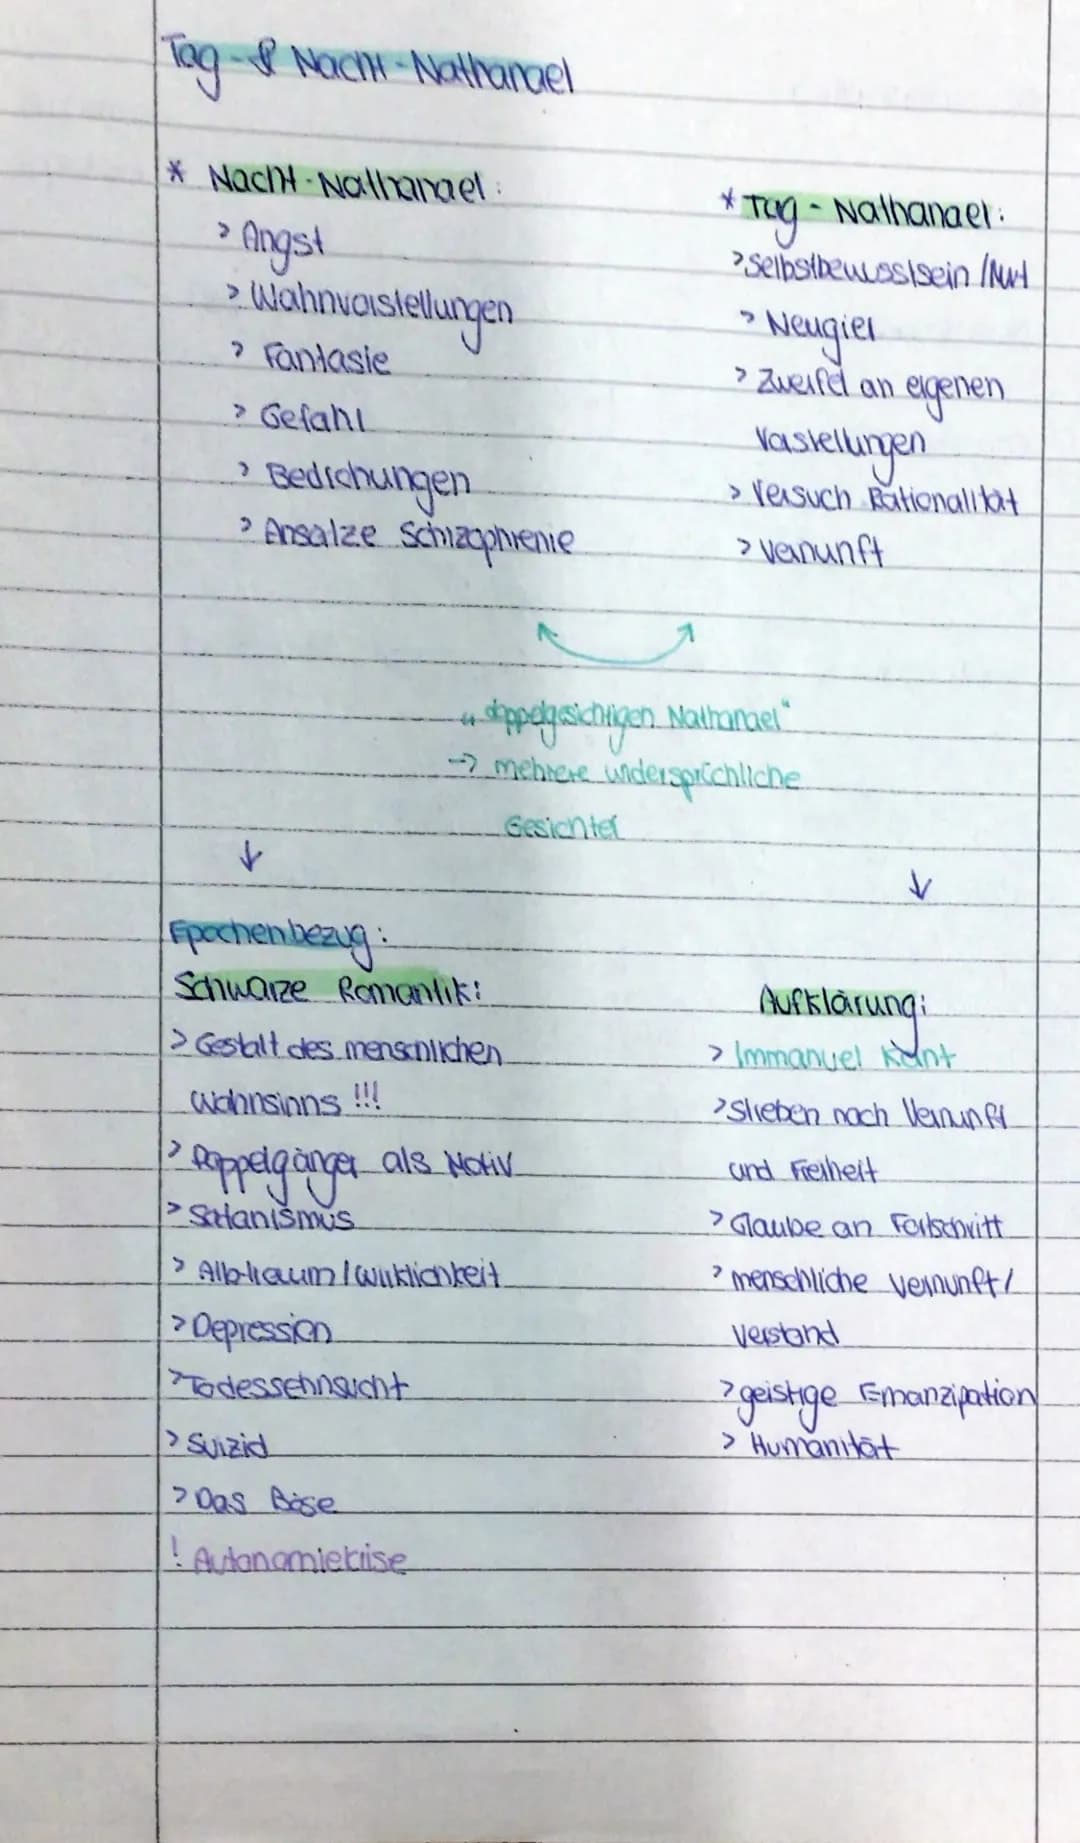 Tag- & Nacht-Nathanael
* Nacht-Nathanael:
> Angst
> Wahnvorstellungen
> Fantasie
> Gefahr
> Bedrohungen
> Ansätze Schizophrenie
* Tag-Nathanael:
> Selbstbewusstsein / Mut
> Neugier
> Zweifel an eigenen
Vorstellungen
> Versuch Rationalität
> Vernunft
"doppelgesichtigen Nathanael"
-> mehrere widersprüchliche
Gesichter
Epochenbezug:
Schwarze Romantik:
> Gestalt des menschlichen
Wahnsinns !!!
> Doppelgänger als Motiv
> Satanismus
> Albtraum / Wirklichkeit
> Depression
> Todessehnsucht
> Suizid
> Das Böse
! Autonomiekrise
Aufklärung:
> Immanuel Kant
> Streben nach Vernunft
und Freiheit
> Glaube an Fortschritt
> menschliche Vernunft /
Verstand
> geistige Emanzipation
> Humanität